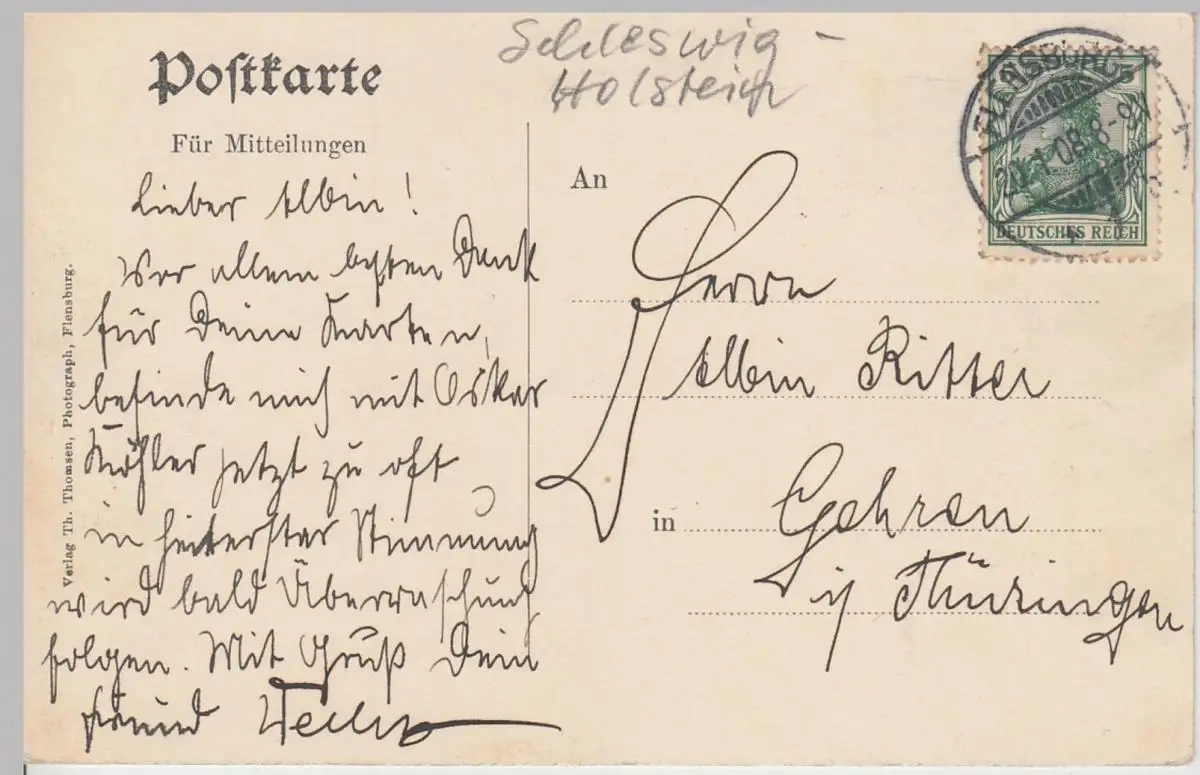 Schleswig -
Holstein
Postkarte
Für Mitteilungen
Lieber Albin!
Vor allem besten Dank
für Deine Karten,
befinde mich mit Oskar
Köhler jetzt zu oft
in heiterster Stimmung
wird bald Überraschung
folgen. Mit Gruß Dein
Freund
Verlag Th. Thomsen, Photograph, Flensburg.
FLENSBURG
20.1.08.8-9V
5
DEUTSCHES REICH
An
Herrn
Albin Ritter
in Gehren
i/ Thüringen